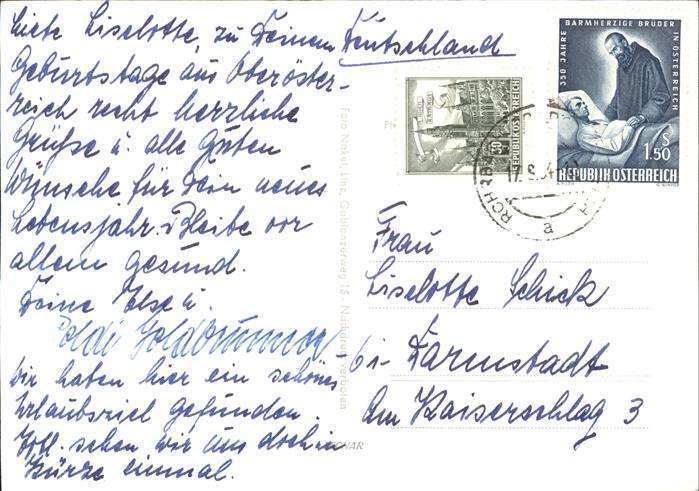 Liebe Liselotte, zu Deinem
Geburtstage aus Oberöster-
reich recht herzliche
Grüße u. alle Guten
Wünsche für Dein neues
Lebensjahr. Bleibe vor
allem gesund.
Deine Else u.
Poldi
Wir haben hier ein schönes
Urlaubsziel gefunden.
sehen wir uns doch in
Kürze einmal.
Deutschland
350 JAHRE
BARMHERZIGE BRÜDER
IN ÖSTERREICH
S
1.50
REPUBLIK ÖSTERREICH
50
REPUBLIK ÖSTERREICH
17. 9. 64
a
Frau
Liselotte Schick
6i - Darmstadt
Am Kaiserschlag 3
Foto Linz, Gablonzerweg 16 - Nachdruck verboten